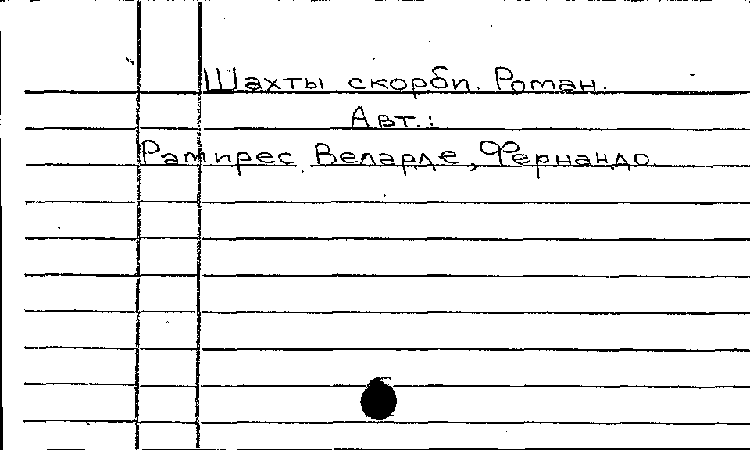 Шахты скорби. Роман.
Авт.:
Рамирес Веларде, Фернандо